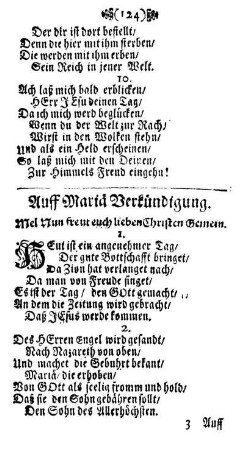 (124)
Der dir ist dort bestellt/
Denn die hier mit ihm sterben/
Die werden mit ihm erben/
Sein Reich in jener Welt.
10.
Ach laß mich bald erblicken/
HErr JEsu deinen Tag/
Da ich mich werd beglücken/
Wenn du der Welt zur Rach/
Wirst in den Wolken stehn/
Und als ein Held erscheinen/
So laß mich mit den Deinen/
Zur Himmels Freud eingehn!
Auff Mariä Verkündigung.
Mel Nun freut euch lieben Christen Gemein.
1.
HEut ist ein angenehmer Tag/
Der gute Bottschafft bringet/
Da Zion hat verlanget nach/
Da man von Freude singet/
Es ist der Tag/ den GOtt gemacht/
An dem die Zeitung wird gebracht/
Daß JEsus werde kommen.
2.
Des HErren Engel wird gesandt/
Nach Nazareth von oben/
Und machet die Gebuhrt bekant/
Maria/ die erhoben/
Von GOtt als seelig fromm und hold/
Daß sie den Sohn gebähren sollt/
Den Sohn des Allerhöchsten.
3 Auff